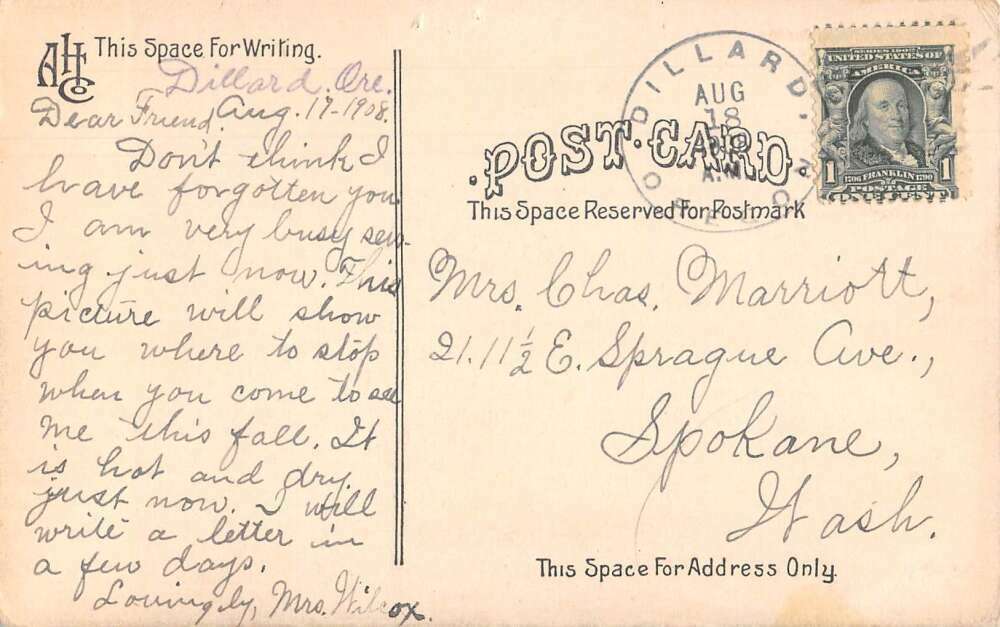 AHCo
This Space For Writing.
Dillard, Ore.
Aug. 17-1908.
Dear Friend,
Don't think I
have forgotten you
I am very busy sew-
ing just now. This
picture will show
you where to stop
when you come to see
me this fall. It
is hot and dry
just now. I will
write a letter in
a few days.
Lovingly, Mrs. Wilcox.
DILLARD,
AUG
18
A.M.
OREGON
POST CARD.
This Space Reserved For Postmark
SERIES 1902
UNITED STATES OF
AMERICA
1 1
1706 FRANKLIN 1790
POSTAGE
Mrs. Chas. Marriott,
21.11½ E. Sprague Ave.,
Spokane,
Wash.
This Space For Address Only.